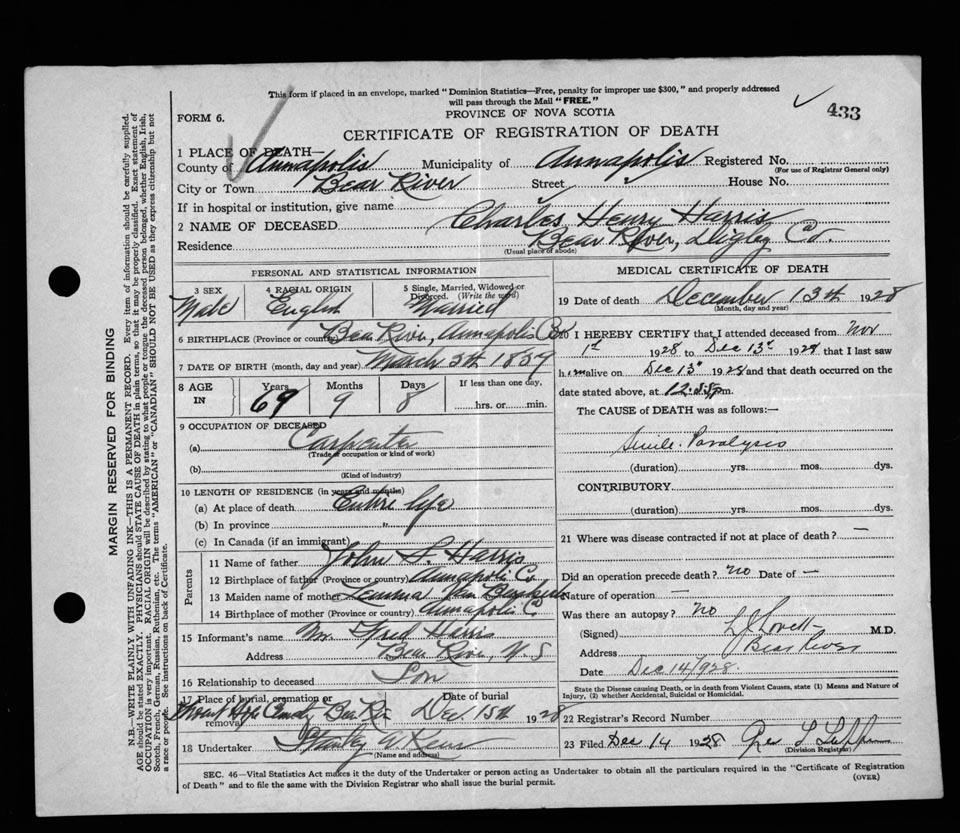 This form if placed in an envelope, marked "Dominion Statistics—Free, penalty for improper use $300," and properly addressed
will pass through the Mail "FREE."
433
FORM 6.
PROVINCE OF NOVA SCOTIA
CERTIFICATE OF REGISTRATION OF DEATH
1 PLACE OF DEATH—
County of Annapolis Municipality of Annapolis Registered No.
(For use of Registrar General only)
City or Town Bear River Street House No.
If in hospital or institution, give name
2 NAME OF DECEASED Charles Henry Harris
Residence Bear River, Digby Co.
(Usual place of abode)
PERSONAL AND STATISTICAL INFORMATION
3 SEX
Male
4 RACIAL ORIGIN
English
5 Single, Married, Widowed or
Divorced. (Write the word)
Married
6 BIRTHPLACE (Province or country) Bear River, Annapolis Co
7 DATE OF BIRTH (month, day and year) March 5th 1859
8 AGE IN
Years Months Days If less than one day,
69 9 8 hrs. or min.
9 OCCUPATION OF DECEASED
(a) Carpenter
(Trade, occupation or kind of work)
(b)
(Kind of industry)
10 LENGTH OF RESIDENCE (in years and months)
(a) At place of death Entire life
(b) In province "
(c) In Canada (if an immigrant)
Parents
11 Name of father John S. Harris
12 Birthplace of father (Province or country) Annapolis Co.
13 Maiden name of mother Van
14 Birthplace of mother (Province or country) Annapolis C.
15 Informant's name Mr. Fred Harris
Address Bear River, N.S
16 Relationship to deceased Son
17 Place of burial, cremation or removal Date of burial
Mount Hope Bear River Dec. 15th 1928
18 Undertaker Stanley
(Name and address)
MEDICAL CERTIFICATE OF DEATH
19 Date of death December 13th 1928
(Month, day and year)
20 I HEREBY CERTIFY that I attended deceased from Nov
1st 1928 to Dec 13th 1928 that I last saw
him alive on Dec 13th 1928 and that death occurred on the
date stated above, at 12. pm.
The CAUSE of DEATH was as follows:—
Senile Paralysis
(duration) yrs. mos. dys.
CONTRIBUTORY.
(duration) yrs. mos. dys.
21 Where was disease contracted if not at place of death? —
Did an operation precede death? no Date of —
Nature of operation —
Was there an autopsy? no
(Signed) Lovett M.D.
Address Bear River
Date Dec 14/928.
State the Disease causing Death, or in death from Violent Causes, state (1) Means and Nature of
Injury, (2) whether Accidental, Suicidal or Homicidal.
22 Registrar's Record Number
23 Filed Dec 14 1928 Geo L
(Division Registrar)
SEC. 46—Vital Statistics Act makes it the duty of the Undertaker or person acting as Undertaker to obtain all the particulars required in the "Certificate of Registration
of Death" and to file the same with the Division Registrar who shall issue the burial permit.
(OVER)
MARGIN RESERVED FOR BINDING
N.B.—WRITE PLAINLY WITH UNFADING INK—THIS IS A PERMANENT RECORD. Every item of information should be carefully supplied.
AGE should be stated EXACTLY. PHYSICIANS should STATE CAUSE OF DEATH in plain terms, so that it may be properly classified. Exact statement of
OCCUPATION is very important. RACIAL ORIGIN will be described by stating to what people or tongue the deceased person belonged, whether English, Irish,
Scotch, French, German, Russian, Ruthenian, etc. The terms "AMERICAN" or "CANADIAN" SHOULD NOT BE USED as they express citizenship but not
a race or people. See instructions on back of Certificate.